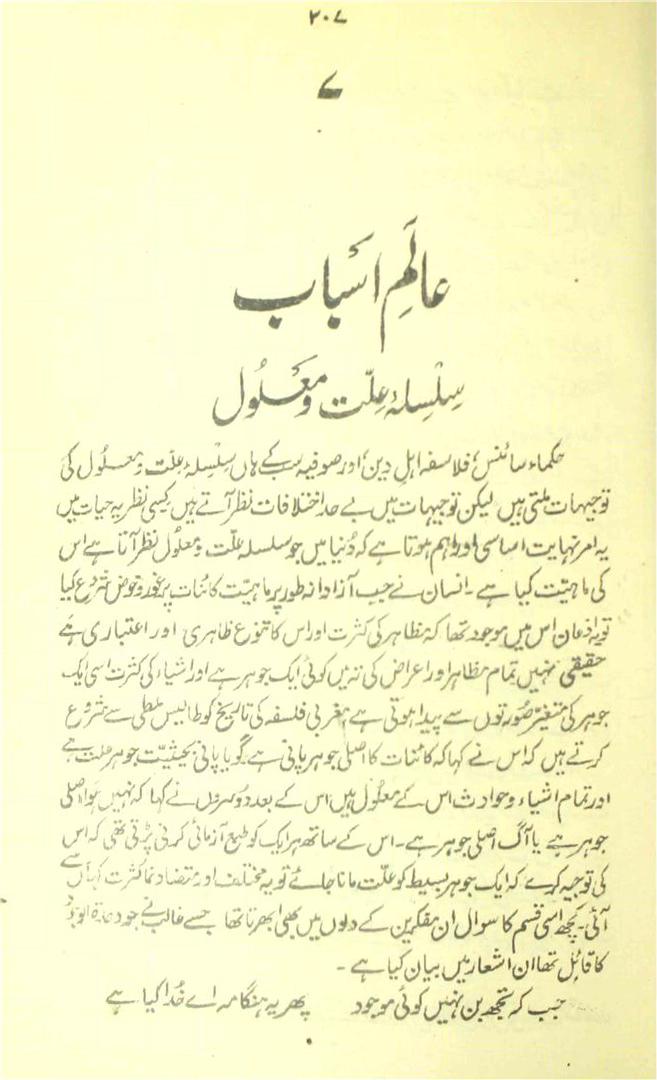 ۲۰۷
۷
عالَمِ اسباب
سِلسِلۂ عِلّت و معلُول
حکماء سائنس، فلاسفہ اہلِ دین، اور صوفیہ سب کے ہاں سِلسِلۂ علّت و معلول کی
توجیہات ملتی ہیں لیکن توجیہات میں بے حد اختلافات نظر آتے ہیں کِسی نظریہ حیات میں
یہ امر نہایت اساسی اور اہم ہوتا ہے کہ دُنیا میں جو سلسلہ علّت و معلُول نظر آتا ہے اس
کی ماہیّت کیا ہے ۔ انسان نے جب آزادانہ طور پر ماہیّت کائنات پر غور و خوض شروع کیا
تو یہ اذعان اس میں موجود تھا کہ مظاہر کی کثرت اور اس کا تنوع ظاہری اور اعتباری ہے
حقیقی نہیں تمام مظاہر اور اعراض کی تہ میں کوئی ایک جوہر ہے اور اشیاء کی کثرت اسی ایک
جوہر کی متغیّر صُورتوں سے پیدا ہوتی ہے مغربی فلسفہ کی تاریخ کو طالیس ملطی سے شروع
کرتے ہیں کہ اس نے کہا کہ کائنات کا اصلی جوہر پانی ہے گویا پانی بحیثیّت جوہر علّت ہے
اور تمام اشیاء و حوادث اس کے معلُول ہیں اس کے بعد دُوسروں نے کہا کہ نہیں ہَوا اصلی
جوہر ہے یا آگ اصلی جوہر ہے ۔ اس کے ساتھ ہر ایک کو طبع آزمائی کرنی پڑتی تھی کہ اس
کی توجیہ کرے کہ ایک جوہرِ بسیط کو علّت مانا جائے تو یہ مختلف اور متضاد نما کثرت کہاں سے
آئی ۔ کچھ اسی قسم کا سوال ان مفکرین کے دلوں میں بھی ابھرتا تھا جسے غالب نے جو وحدۃ الوجُود
کا قائل تھا ان اشعار میں بیان کیا ہے ۔
جب کہ تجھ بن نہیں کوئی موجود پھر یہ ہنگامہ اے خُدا کیا ہے